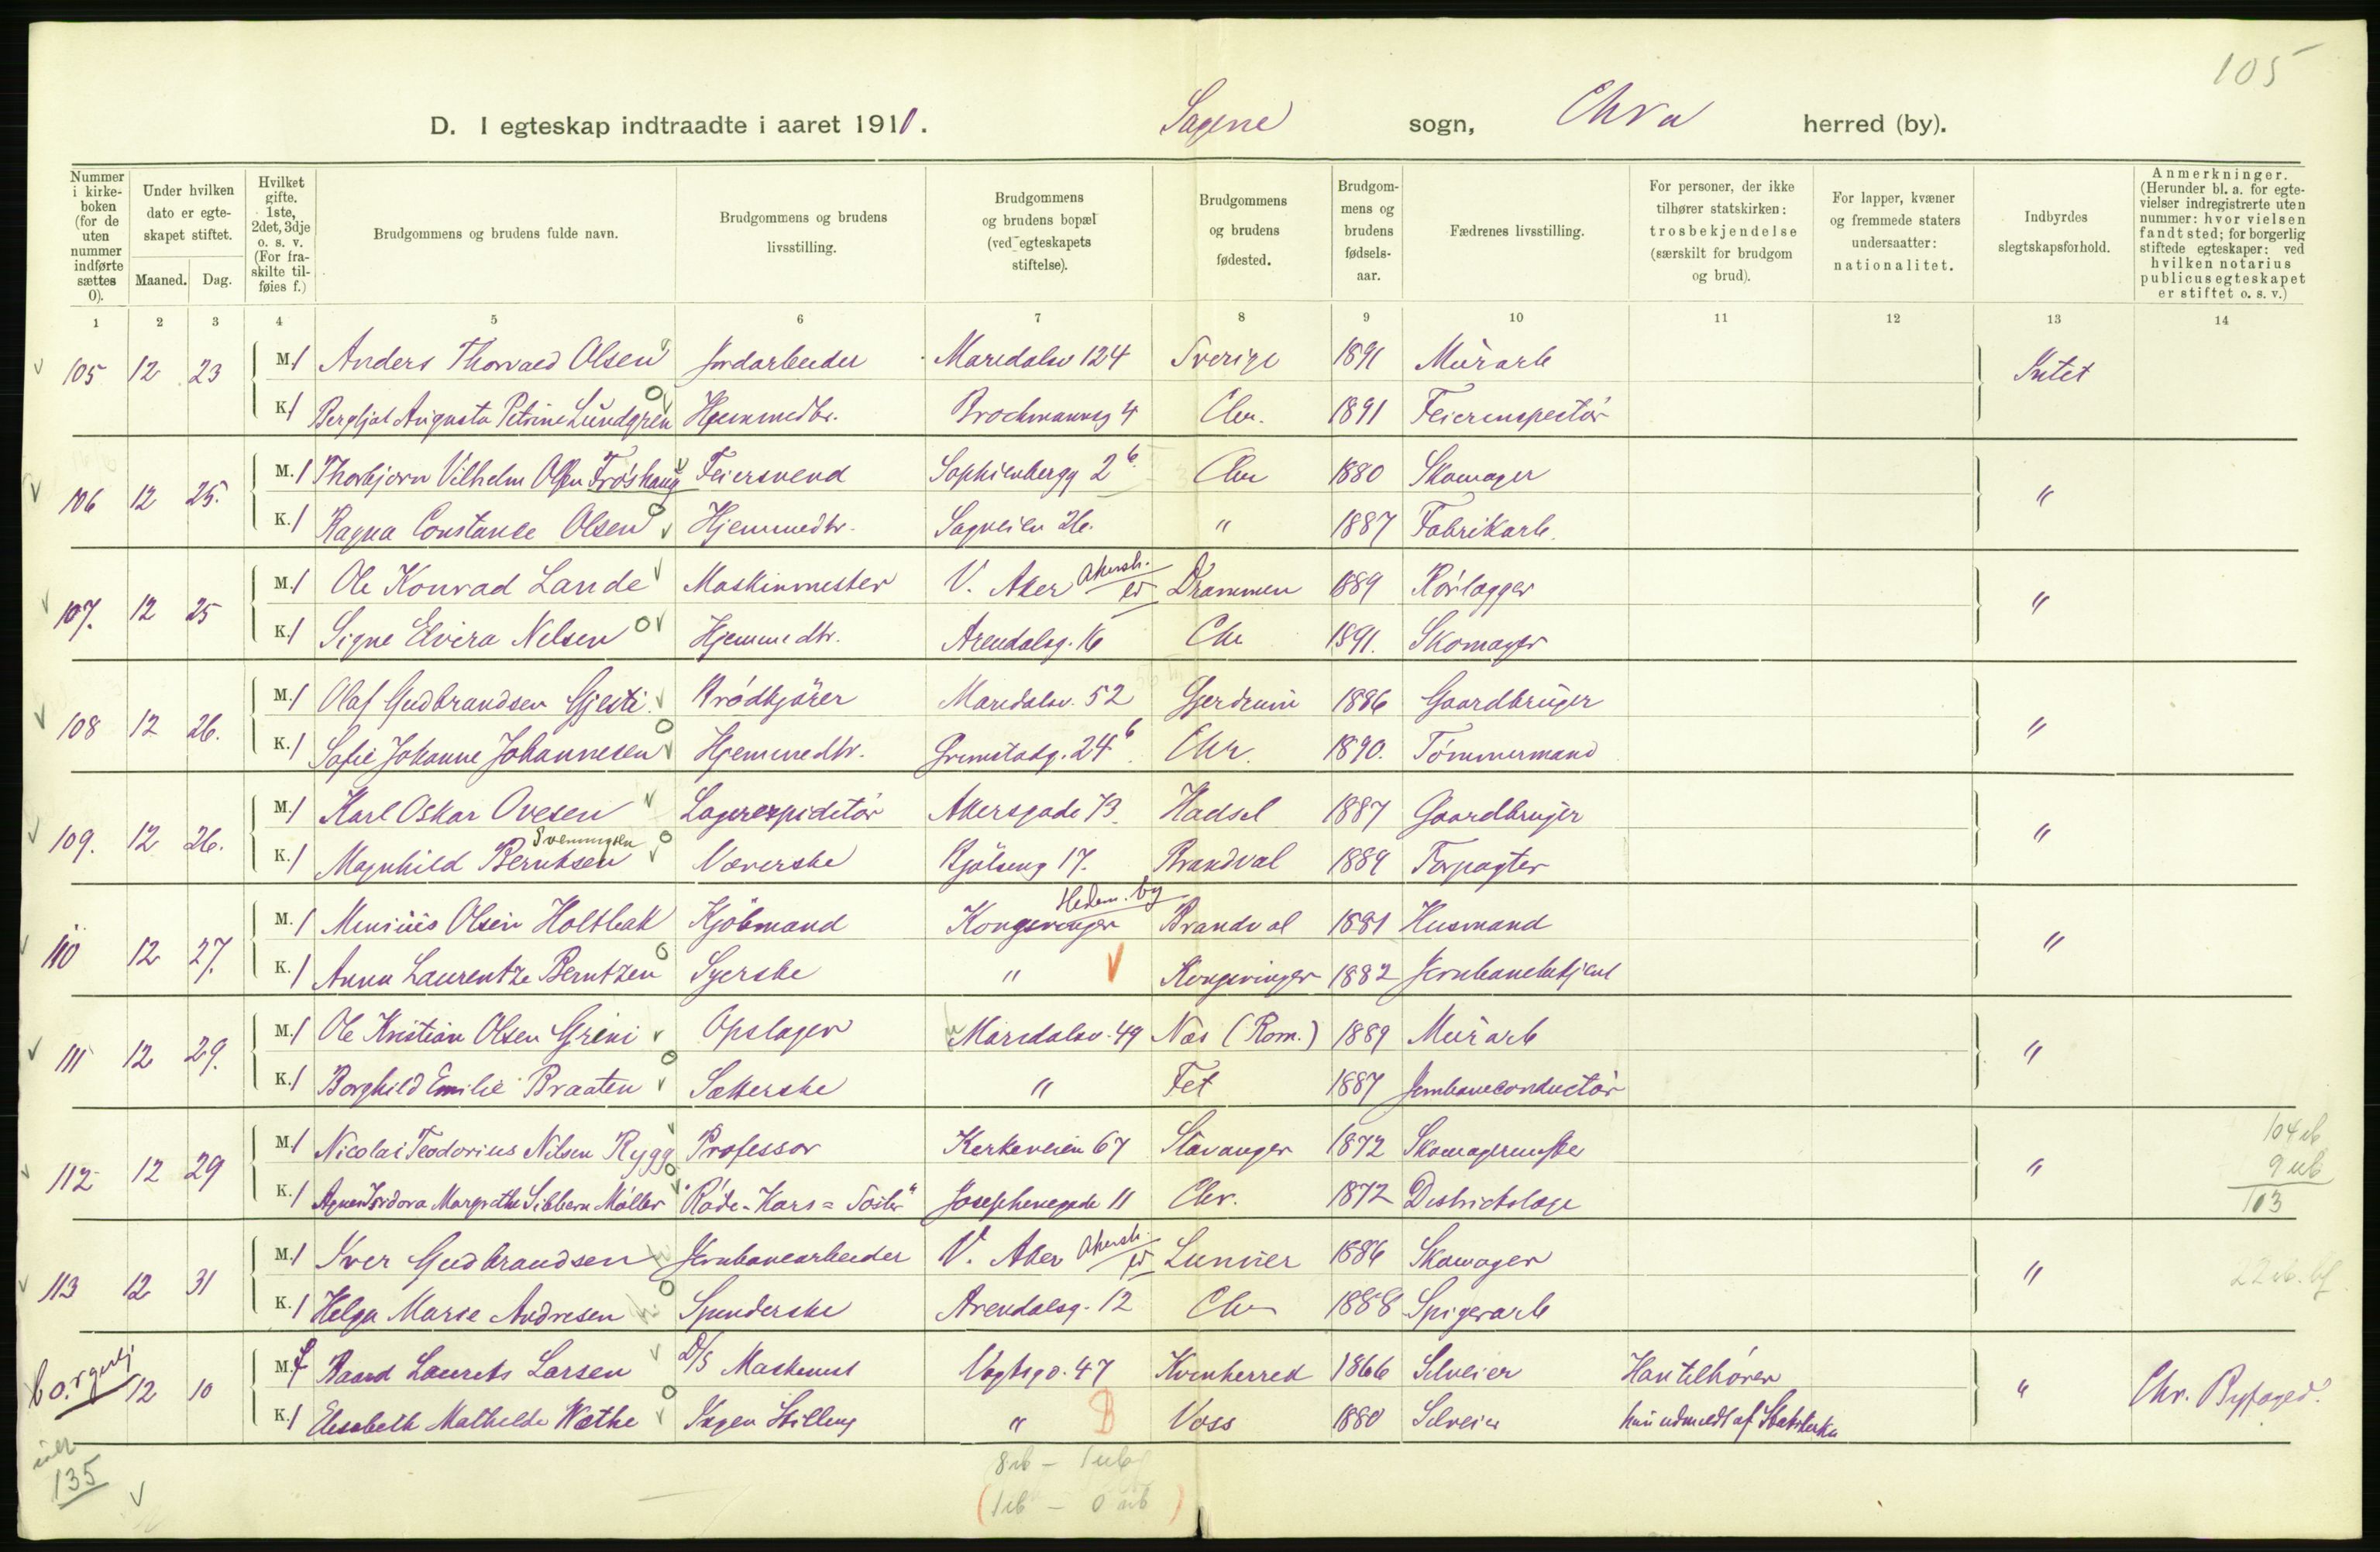 105
D. I egteskap indtraadte i aaret 1911. Sagene sogn, Chra herred (by).
Nummer i kirke-boken (for de uten nummer indførte sættes 0).
Under hvilken dato er egte-skapet stiftet.
Maaned. Dag.
Hvilket gifte. 1ste, 2det, 3dje o. s. v. (For fra-skilte til-føies f.)
Brudgommens og brudens fulde navn.
Brudgommens og brudens livsstilling.
Brudgommens og brudens bopæl (ved egteskapets stiftelse).
Brudgommens og brudens fødested.
Brudgom-mens og brudens fødsels-aar.
Fædrenes livsstilling.
For personer, der ikke tilhører statskirken: trosbekjendelse (særskilt for brudgom og brud).
For lapper, kvæner og fremmede staters undersaatter: nationalitet.
Indbyrdes slegtskapsforhold.
Anmerkninger. (Herunder bl. a. for egte-vielser indregistrerte uten nummer: hvor vielsen fandt sted; for borgerlig stiftede egteskaper: ved hvilken notarius publicus egteskapet er stiftet o. s. v.)
1 2 3 4 5 6 7 8 9 10 11 12 13 14
105 12 23 M. 1 Anders Thorvald Olsen Jordarbeider Maridalsv 124 Sverige 1891 Murarb Intet
K. 1 Bergljot Augusta Petrine Lundgren Hjemmedtr. Brochmannsg 4 Chr. 1891 Feierinspektør
106 12 25. M. 1 Thorbjørn Vilhelm Olsen Frøshaug Feiersvend Sophienbergg 2 b. Chr 1880 Skomager "
K. 1 Ragna Constance Olsen Hjemmedtr. Sagveien 26. " 1887 Fabrikarb.
107. 12 25 M. 1 Ole Konrad Lande Maskinmester V. Aker Akersh. Drammen 1889 Rørlægger "
K. 1 Signe Elvira Nelsen Hjemmedtr. Arendalsg. 16 Chr 1891. Skomager
108 12 26. M. 1 Olaf Gudbrandsen Gjesti Brødkjører Maridalsv. 52 Gjerdrum 1886 Gaardbruger "
K. 1 Sofie Johanne Johannesen Hjemmedtr. Grimstadg. 24 b. Chr. 1890. Tømmermand
109. 12 26. M. 1 Karl Oskar Ovesen Lagerexpiditør Akersgade 73 Hadsel 1887 Gaardbruger "
Sveningsen
K. 1 Magnhild Berntsen Væverske Bjølseng 17. Brandval 1889 Forpagter
Hedem. by
110 12 27. M. 1 Minius Olsen Holtbak Kjøbmand Kongsvinger Brandval 1881 Husmand "
K. 1 Anna Laurentze Berntzen Syerske " Kongsvinger 1882 Jernbanebetjent
111 12 29. M. 1 Ole Kristian Olsen Greni Opslager Maridalsv. 49 Næs (Rom.) 1889 Murarb "
K. 1 Borghild Emilie Braaten Sætterske " Fet 1887 Jernbaneconductør
112 12 29 M. 1 Nicolai Teodorius Nilsen Rygg Professor Kirkeveien 67 Stavanger 1872 Skomagermester "
K. 1 Agnes Isidora Margrethe Sibbern Møller "Røde-Kors=Søster" Josephinegade 11 Chr. 1872 Distriktslæge
104 ib
9 ub
113
113 12 31 M. 1 Iver Gudbrandsen Jernbanearbeider V. Aker Akersh. Lunner 1886 Skomager "
K. 1 Helga Marie Andresen Spinderske Arendalsg. 12 Chr 1888 Spigerarb
borgerlj 12 10 M. Baard Laurits Larsen D/S Maskinist Vogtsgd. 47 Kvinherred 1866 Selveier Han tilhører " Chr. Byfoged.
K. 1 Elisabeth Mathilde Wæthe Ingen Stilling " B Voss 1880 Selveier hun udmeldt af Statskirken
135
8 ib - 1 ub
(1 ib - 0 ub)